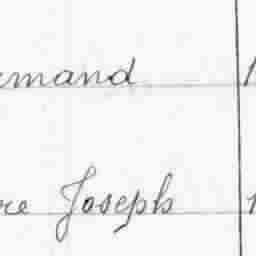 rmand
re Joseph